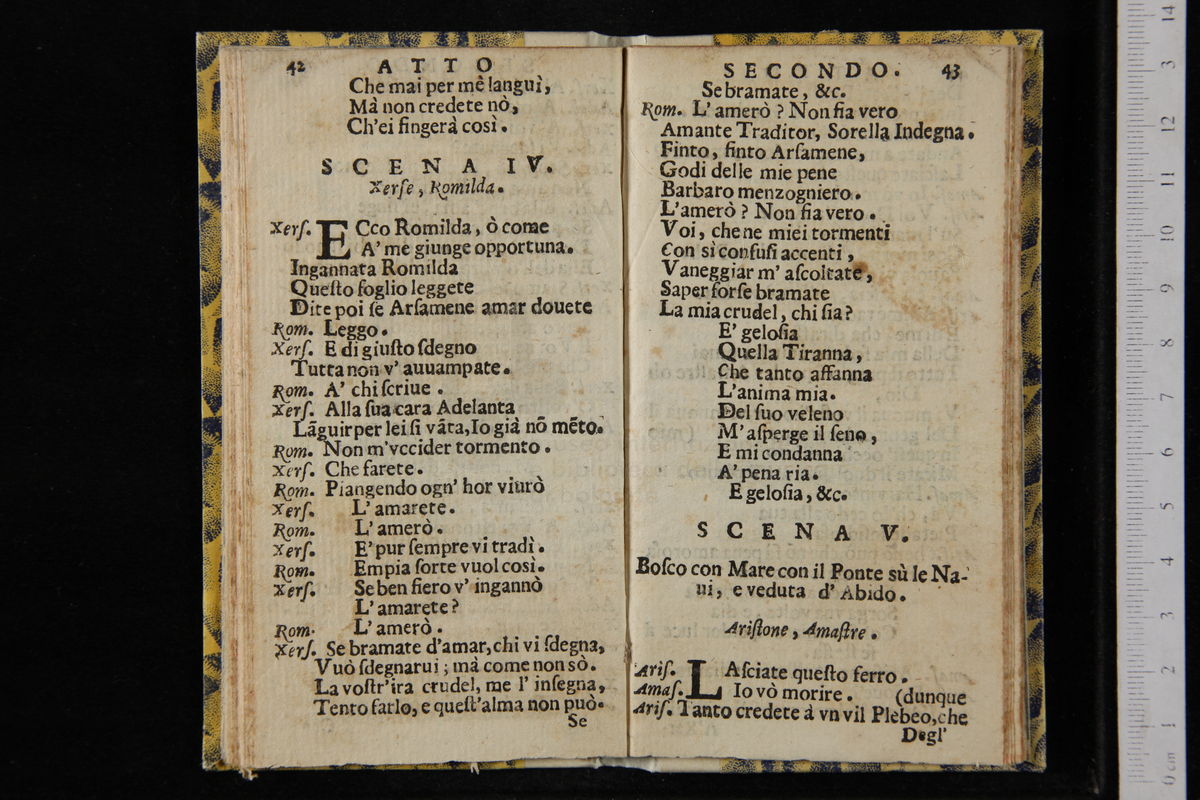 42 ATTO
Che mai per mè languì,
Mà non credete nò,
Ch'ei fingerà così.
SCENA IV.
Xerſe, Romilda.
Xerſ. ECco Romilda, ò come
A' me giunge opportuna.
Ingannata Romilda
Queſto foglio leggete
Dite poi ſe Arſamene amar douete
Rom. Leggo.
Xerſ. E di giuſto ſdegno
Tutta non v' auuampate.
Rom. A' chi ſcriue.
Xerſ. Alla ſua cara Adelanta
Lãguir per lei ſi vãta, Io già nõ mẽto.
Rom. Non m'vccider tormento.
Xerſ. Che farete.
Rom. Piangendo ogn' hor viurò
Xerſ. L' amarete.
Rom. L' amerò.
Xerſ. E' pur ſempre vi tradì.
Rom. Empia ſorte vuol così.
Xerſ. Se ben fiero v' ingannò
L' amarete?
Rom. L' amerò.
Xerſ. Se bramate d'amar, chi vi ſdegna,
Vuò ſdegnarui; mà come non sò.
La voſtr'ira crudel, me l' inſegna,
Tento farlo, e queſt'alma non può.
Se
SECONDO. 43
Se bramate, &c.
Rom. L' amerò? Non fia vero
Amante Traditor, Sorella Indegna.
Finto, finto Arſamene,
Godi delle mie pene
Barbaro menzogniero.
L'amerò? Non fia vero.
Voi, che ne miei tormenti
Con sì confuſi accenti,
Vaneggiar m' aſcoltate,
Saper forſe bramate
La mia crudel, chi ſia?
E' geloſia
Quella Tiranna,
Che tanto affanna
L'anima mia.
Del ſuo veleno
M'aſperge il ſeno,
E mi condanna
A' pena ria.
E geloſia, &c.
SCENA V.
Boſco con Mare con il Ponte sù le Na-
ui, e veduta d' Abido.
Ariſtone, Amaſtre.
Ariſ. LAſciate queſto ferro.
Amaſ. Io vò morire. (dunque
Ariſ. Tanto credete à vn vil Plebeo, che
Degl'
0 cm 1 2 3 4 5 6 7 8 9 10 11 12 3 14